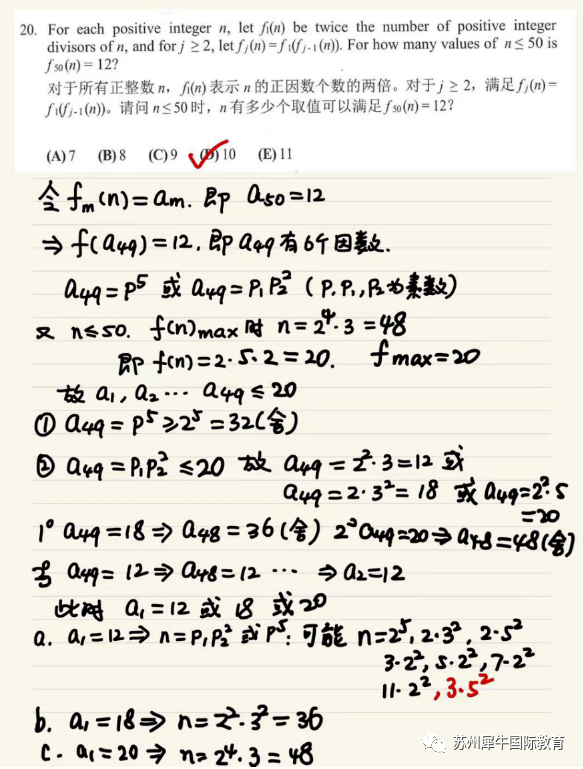 20. For each positive integer n, let f₁(n) be twice the number of positive integer
divisors of n, and for j ≥ 2, let fⱼ(n) = f₁(fⱼ₋₁(n)). For how many values of n ≤ 50 is
f₅₀(n) = 12?
对于所有正整数 n，f₁(n) 表示 n 的正因数个数的两倍。对于 j ≥ 2，满足 fⱼ(n) =
f₁(fⱼ₋₁(n))。请问 n ≤ 50 时，n 有多少个取值可以满足 f₅₀(n) = 12?
(A) 7 (B) 8 (C) 9 (D) 10 (E) 11
令 fm(n) = am. 即 a50 = 12
⇒ f(a49) = 12. 即 a49 有6个因数.
a49 = p⁵ 或 a49 = P₁P₂² (P. P₁, P₂为素数)
又 n ≤ 50. f(n)max 时 n = 2⁴·3 = 48
即 f(n) = 2·5·2 = 20. fmax = 20
故 a1, a2 ··· a49 ≤ 20
① a49 = p⁵ ≥ 2⁵ = 32 (舍)
② a49 = P₁P₂² ≤ 20 故 a49 = 2²·3 = 12 或
a49 = 2·3² = 18 或 a49 = 2²·5
= 20
1° a49 = 18 ⇒ a48 = 36 (舍) 2° a49 = 20 ⇒ a48 = 48 (舍)
当 a49 = 12 ⇒ a48 = 12 ··· ⇒ a2 = 12
此时 a1 = 12 或 18 或 20
a. a1 = 12 ⇒ n = P₁P₂² 或 P⁵: 可能 n = 2⁵, 2·3², 2·5²
3·2², 5·2², 7·2²
11·2², 3·5²
b. a1 = 18 ⇒ n = 2²·3² = 36
c. a1 = 20 ⇒ n = 2⁴·3 = 48
苏州犀牛国际教育